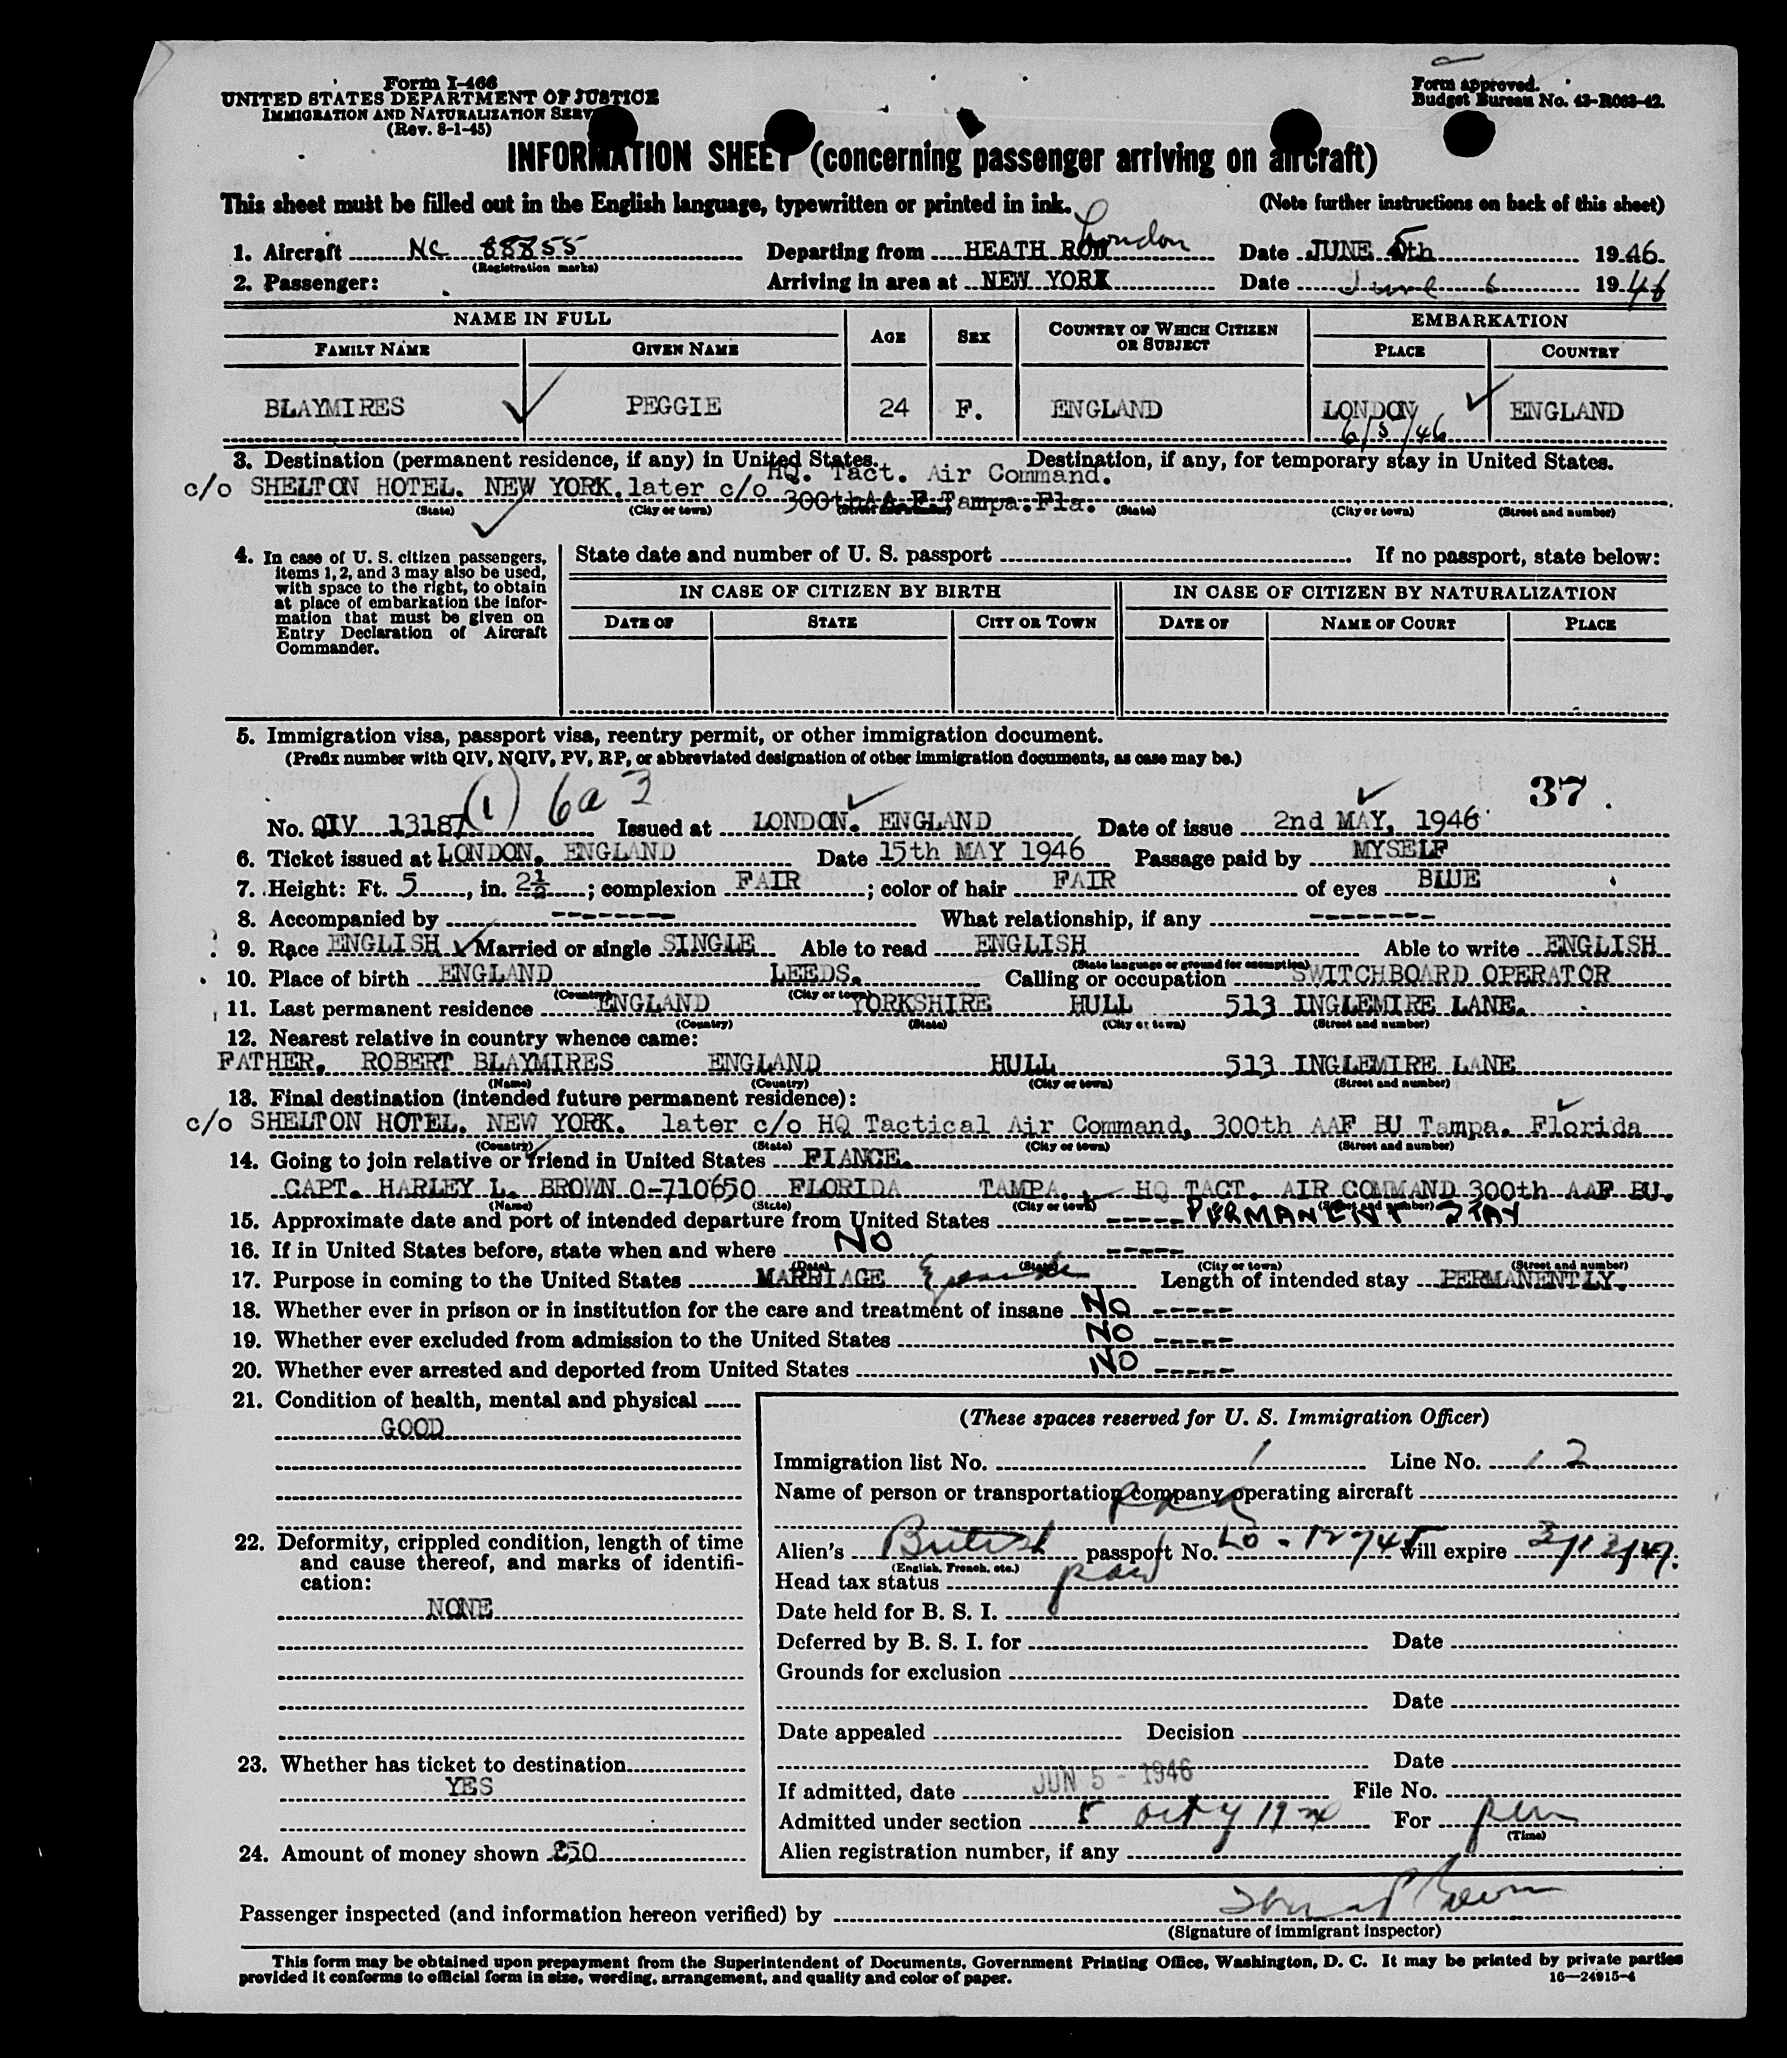 Form I-466
UNITED STATES DEPARTMENT OF JUSTICE
IMMIGRATION AND NATURALIZATION SERV
(Rev. 8-1-45)
Form approved.
Budget Bureau No. 43-R063-42.
INFORMATION SHEET (concerning passenger arriving on aircraft)
This sheet must be filled out in the English language, typewritten or printed in ink. (Note further instructions on back of this sheet)
1. Aircraft NC 88855 Departing from HEATH ROW London Date JUNE 5th 1946.
(Registration marks)
2. Passenger: Arriving in area at NEW YORK Date June 6 1946
NAME IN FULL AGE SEX COUNTRY OF WHICH CITIZEN OR SUBJECT EMBARKATION
FAMILY NAME GIVEN NAME PLACE COUNTRY
BLAYMIRES PEGGIE 24 F. ENGLAND LONDON ENGLAND
6/5/46
3. Destination (permanent residence, if any) in United States. Destination, if any, for temporary stay in United States.
HQ. Tact. Air Command.
c/o SHELTON HOTEL. NEW YORK. later c/o 300th A.A.F. Tampa.Fla.
(State) (City or town) (Street and number) (State) (City or town) (Street and number)
4. In case of U. S. citizen passengers, items 1, 2, and 3 may also be used, with space to the right, to obtain at place of embarkation the information that must be given on Entry Declaration of Aircraft Commander.
State date and number of U. S. passport If no passport, state below:
IN CASE OF CITIZEN BY BIRTH IN CASE OF CITIZEN BY NATURALIZATION
DATE OF STATE CITY OR TOWN DATE OF NAME OF COURT PLACE
5. Immigration visa, passport visa, reentry permit, or other immigration document.
(Prefix number with QIV, NQIV, PV, RP, or abbreviated designation of other immigration documents, as case may be.)
(1) 6a 3 37.
No. QIV 13187 Issued at LONDON. ENGLAND Date of issue 2nd MAY, 1946
6. Ticket issued at LONDON. ENGLAND Date 15th MAY 1946 Passage paid by MYSELF
7. Height: Ft. 5, in. 2½; complexion FAIR; color of hair FAIR of eyes BLUE
8. Accompanied by -------- What relationship, if any --------
9. Race ENGLISH Married or single SINGLE Able to read ENGLISH Able to write ENGLISH
(State language or ground for exemption)
10. Place of birth ENGLAND LEEDS. Calling or occupation SWITCHBOARD OPERATOR
(Country) (City or town)
11. Last permanent residence ENGLAND YORKSHIRE HULL 513 INGLEMIRE LANE.
(Country) (State) (City or town) (Street and number)
12. Nearest relative in country whence came:
FATHER. ROBERT BLAYMIRES ENGLAND HULL 513 INGLEMIRE LANE
(Name) (Country) (City or town) (Street and number)
13. Final destination (intended future permanent residence):
c/o SHELTON HOTEL. NEW YORK. later c/o HQ Tactical Air Command, 300th AAF BU Tampa. Florida
(Country) (State) (City or town) (Street and number)
14. Going to join relative or friend in United States FIANCE.
CAPT. HARLEY L. BROWN O-710650 FLORIDA TAMPA. HQ TACT. AIR COMMAND 300th AAF BU.
(Name) (State) (City or town) (Street and number)
15. Approximate date and port of intended departure from United States ----- PERMANENT STAY
16. If in United States before, state when and where NO -----
(Date) (State) (City or town) (Street and number)
17. Purpose in coming to the United States MARRIAGE Length of intended stay PERMANENTLY.
18. Whether ever in prison or in institution for the care and treatment of insane NO -----
19. Whether ever excluded from admission to the United States NO -----
20. Whether ever arrested and deported from United States NO -----
21. Condition of health, mental and physical
GOOD
22. Deformity, crippled condition, length of time and cause thereof, and marks of identification:
NONE
23. Whether has ticket to destination
YES
24. Amount of money shown £50
(These spaces reserved for U. S. Immigration Officer)
Immigration list No. 1 Line No. 12
Name of person or transportation company operating aircraft
Alien's British passport No. Will expire
(English, French, etc.)
Head tax status paid
Date held for B. S. I.
Deferred by B. S. I. for Date
Grounds for exclusion
Date
Date appealed Decision
Date
If admitted, date JUN 5 - 1946 File No.
Admitted under section 5 For
(Time)
Alien registration number, if any
Passenger inspected (and information hereon verified) by
(Signature of immigrant inspector)
This form may be obtained upon prepayment from the Superintendent of Documents, Government Printing Office, Washington, D. C. It may be printed by private parties
provided it conforms to official form in size, wording, arrangement, and quality and color of paper. 16—24915-4